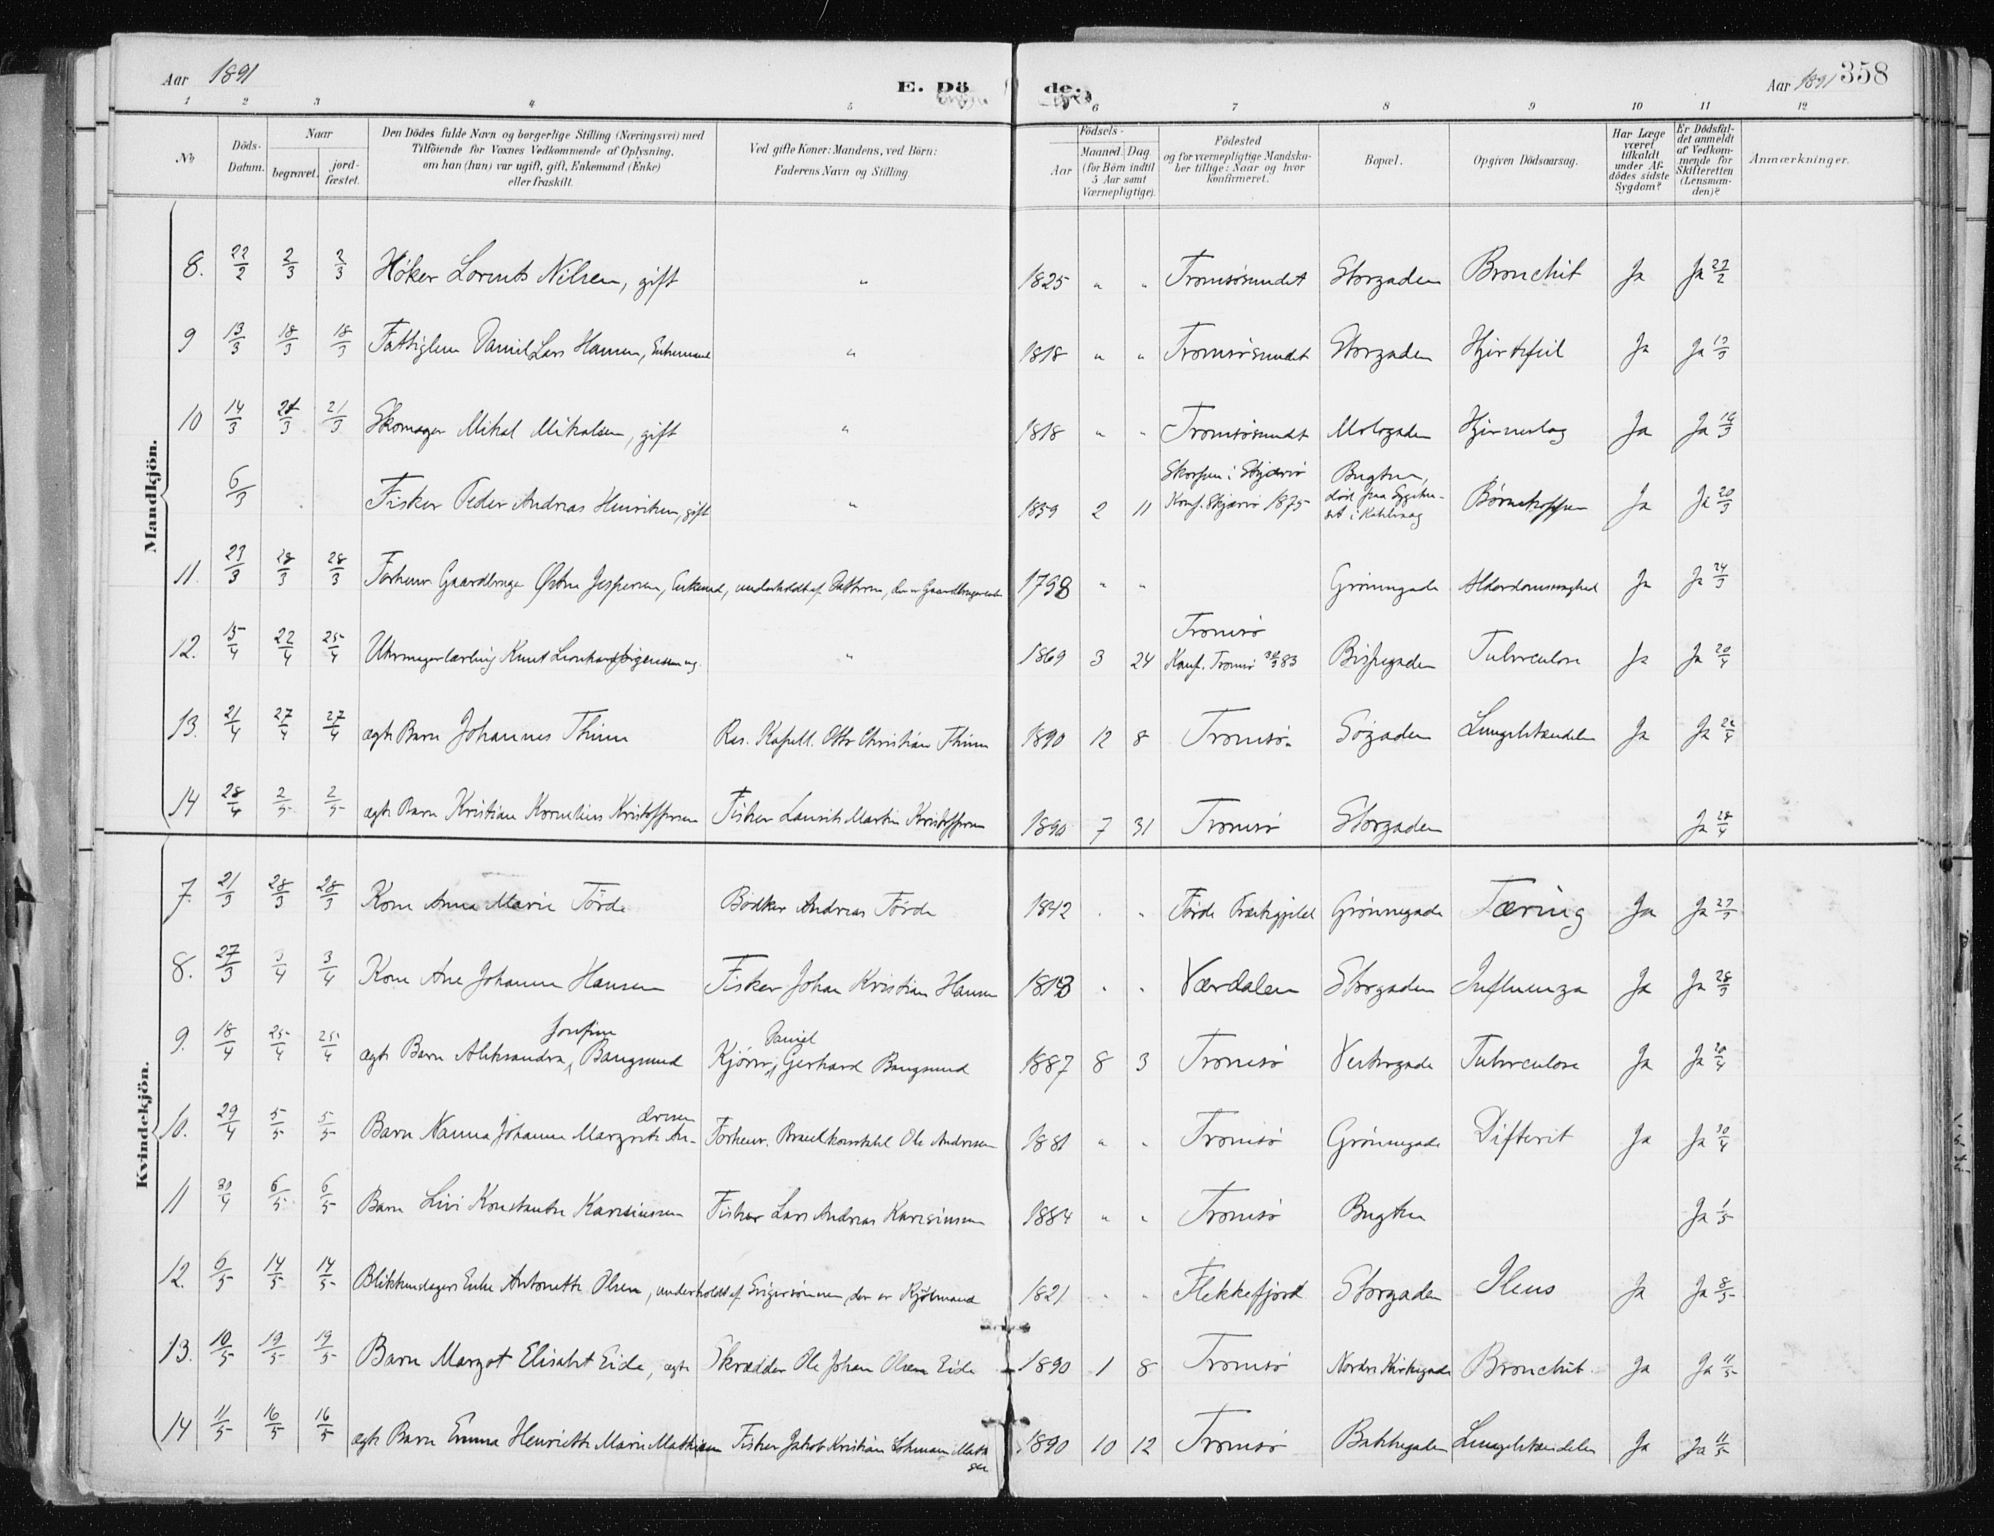 Aar 1891
E. Dö
de.
Aar 1891
358
1 2 3 4 5 6 7 8 9 10 11 12
No
Döds-Datum.
Naar
begravet.
jord-fæstet.
Den Dödes fulde Navn og borgerlige Stilling (Næringsvei) med
Tilföiende for Voxnes Vedkommende af Oplysning,
om han (hun) var ugift, gift, Enkemand (Enke)
eller fraskilt.
Ved gifte Koner: Mandens, ved Börn:
Faderens Navn og Stilling.
Födsels-
Aar
Maaned. Dag
(for Börn indtil
5 Aar samt
Værnepligtige).
Födested
og for værnepligtige Mandska-
ber tillige: Naar og hvor
konfirmeret.
Bopæl.
Opgiven Dödsaarsag.
Har Læge
været
tilkaldt
under Af-
dödes sidste
Sygdom?
Er Dödsfal-
det anmeldt
af Vedkom-
mende for
Skifteretten
(Lensman-
den)?
Anmærkninger.
Mandkjön.
8. 22/2 2/3 2/3 Høker Lorents Nilsen, gift " 1825 " " Tromsøsundet Storgaden Bronchit Ja Ja 27/2
9 13/3 18/3 18/3 Fattiglem Daniel Lars Hansen, Enkemand " 1818 " " Tromsøsundet Storgaden Hjertefeil Ja Ja 13/3
10 14/3 21/3 21/3 Skomager Mikal Mikalsen, gift " 1818 " " Tromsøsundet Hjerneslag Ja Ja 16/3
6/3 Fisker Peder Andreas Henriksen, gift " 1859 2 11 Skjærvø Konf. Skjærvø 1875 Bugten, Ja Ja 20/3
11. 23/3 28/3 28/3 Forhenv. Gaardbruger Jespersen, Enkemd, underholdt af Datteren, der er 1798 " " Grønnegade Alderdomssvaghed Ja Ja 24/3
12. 15/4 22/4 25/4 Uhrmagerlærling Knut Leonhard Jørgensen ug. " 1869 3 24 Tromsø Konf. Tromsø 83 Bispegaden Tuberculose Ja Ja 20/4
13. 21/4 27/4 27/4 ægte Barn Johannes Thinn Res. Kapell. Otto Christian Thinn 1890 12 8 Tromsø. Søgaden Lungebetændelse Ja Ja 22/4
14 28/4 2/5 2/5 ægte Barn Kristian Kornelius Kristoffersen Fisker Laurits Martin Kristoffersen 1890 7 31 Tromsø Storgaden Ja 28/4
Kvindekjön.
7. 21/3 28/3 28/3 Kone Anna Marie Førde Bødker Andreas Førde 1842 " " Førde Præstegjeld Grønnegade Tæring Ja Ja 23/3
8. 27/3 3/4 3/4 Kone Ane Johanna Hansen Fisker Johan Kristian Hansen 1813 " " Værdalen Storgaden Influenza Ja Ja 28/3
9. 18/4 25/4 25/4 ægte Barn Aleksandra, Josefine Bangsund Daniel Gerhard Bangsund 1887 8 3 Tromsø Vestregade Tuberculose Ja Ja 20/4
10. 29/4 5/5 5/5 Barn Nanna Johanna Margrete An-dresen Forhenv. Brandkonstabel Ole Andresen 1881 " " Tromsø Grønnegade Difterit Ja Ja 30/4
11 30/4 6/5 6/5 Barn Livi Konstanse Karisiussen Fisker Lars Andreas Karisiussen 1884 " " Tromsø Bugten Ja 1/5
12. 6/5 14/5 14/5 Blikkenslagers Enke Antonette Olsen, underholdt af Svigersønnen, der er Kjøbmand 1821 " " Flekkefjord Storgaden Ileus Ja Ja 8/5
13. 10/5 19/5 19/5 Barn Margot Elisabet Eide, ægte Skrædder Ole Johan Olsen Eide 1890 1 8 Tromsø Nordre Kirkegade Bronchit. Ja Ja 11/5
14 11/5 16/5 16/5 ægte Barn Emma Henriette Marie Mathisen Fisker Jakob Kristian Lohmann 1890 10 12 Tromsø Bakkegaden Lungebetændelse Ja Ja 11/5